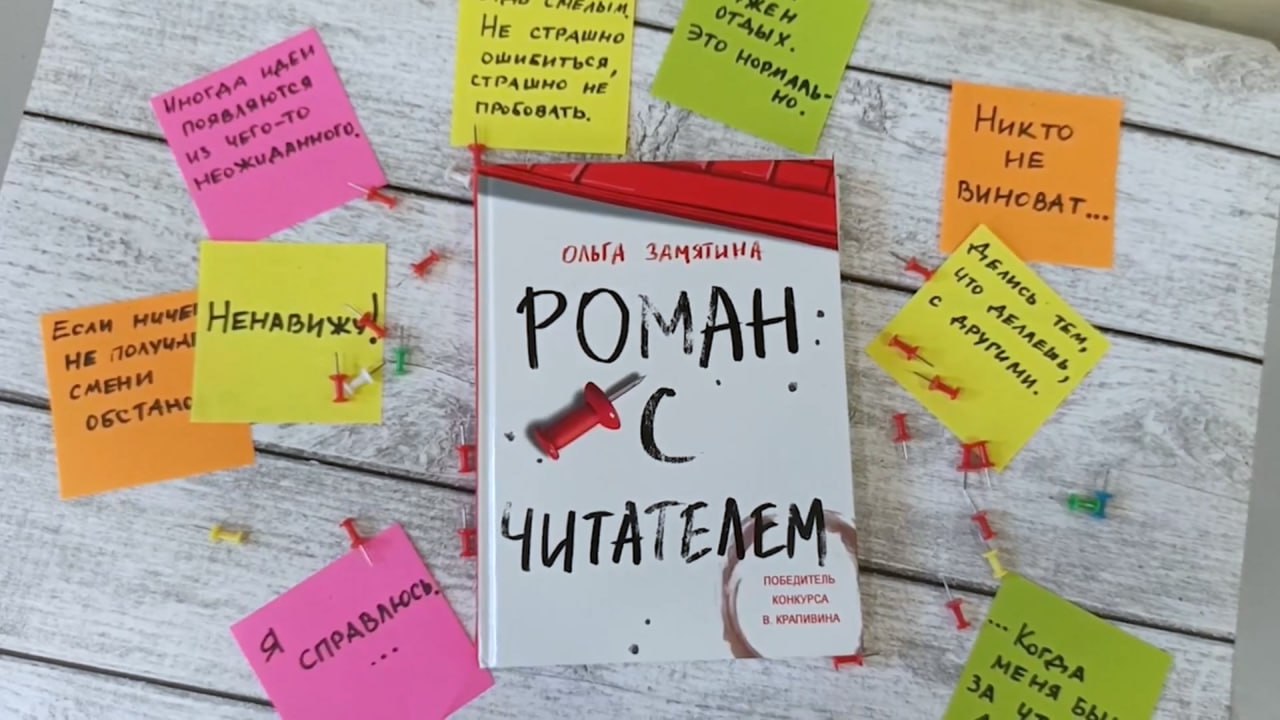 Иногда идеи
появляются
из чего-то
неожиданного.
смелым.
Не страшно
ошибиться,
страшно не
пробовать.
отдых.
Это нормаль-
но.
Никто
не
виноват...
Если
не
смени
Ненавижу!
Делись тем,
что делаешь,
с
другими.
Ольга Замятина
Роман
с
читателем
ПОБЕДИТЕЛЬ
КОНКУРСА
В. КРАПИВИНА
Я
справлюсь.
...
...Когда
меня
за